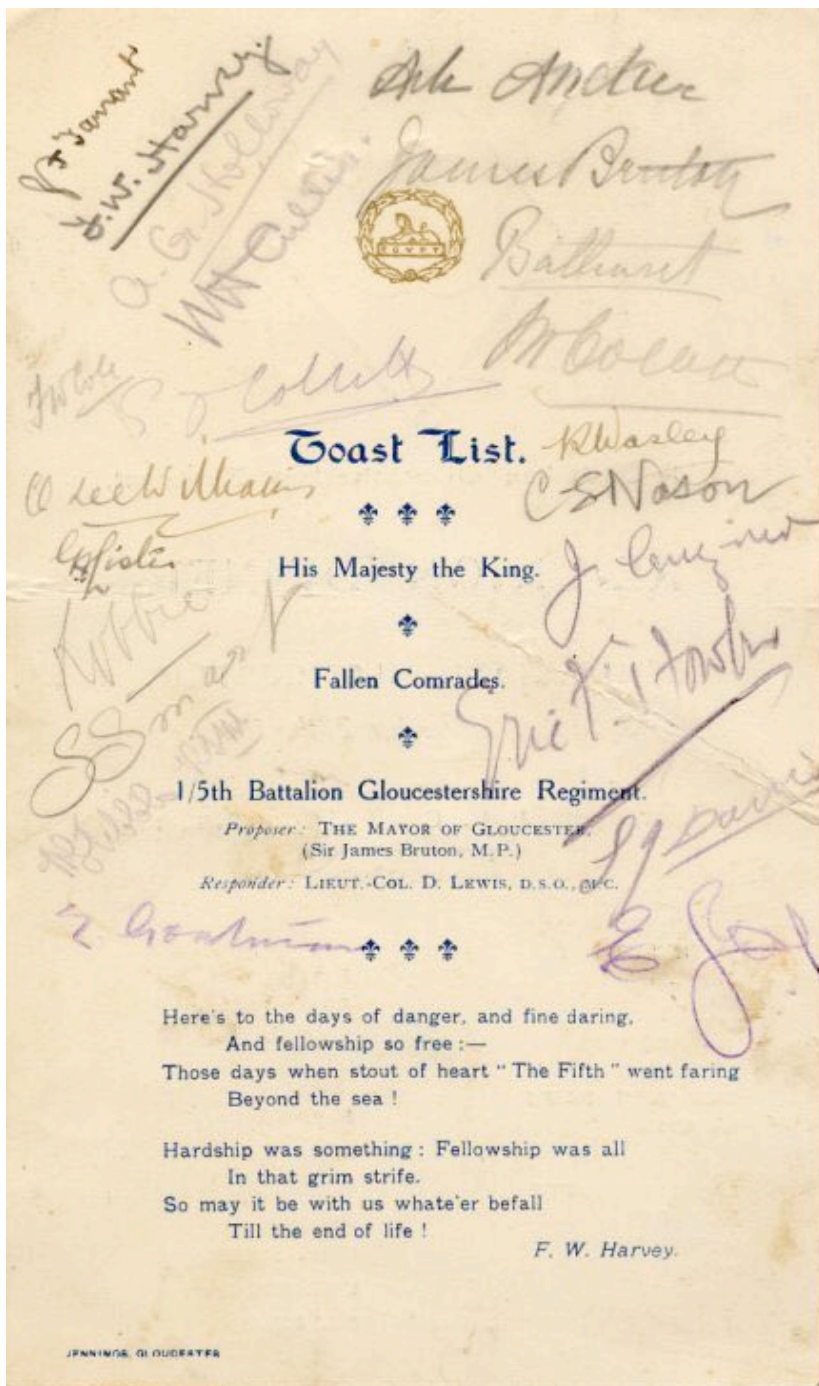 F. W. Harvey
A. G. Holloway
James Bruton
EGYPT
Bathurst
Toast List.
R Wasley
C E Nason
His Majesty the King.
Robbie
Fallen Comrades.
S Smart
Eric F. Fowler
1/5th Battalion Gloucestershire Regiment.
Proposer: THE MAYOR OF GLOUCESTER,
(Sir James Bruton, M.P.)
Responder: LIEUT.-COL. D. LEWIS, D.S.O., M.C.
Here's to the days of danger, and fine daring,
And fellowship so free :—
Those days when stout of heart "The Fifth" went faring
Beyond the sea !
Hardship was something : Fellowship was all
In that grim strife.
So may it be with us whate'er befall
Till the end of life !
F. W. Harvey.
JENNINGS, GLOUCESTER